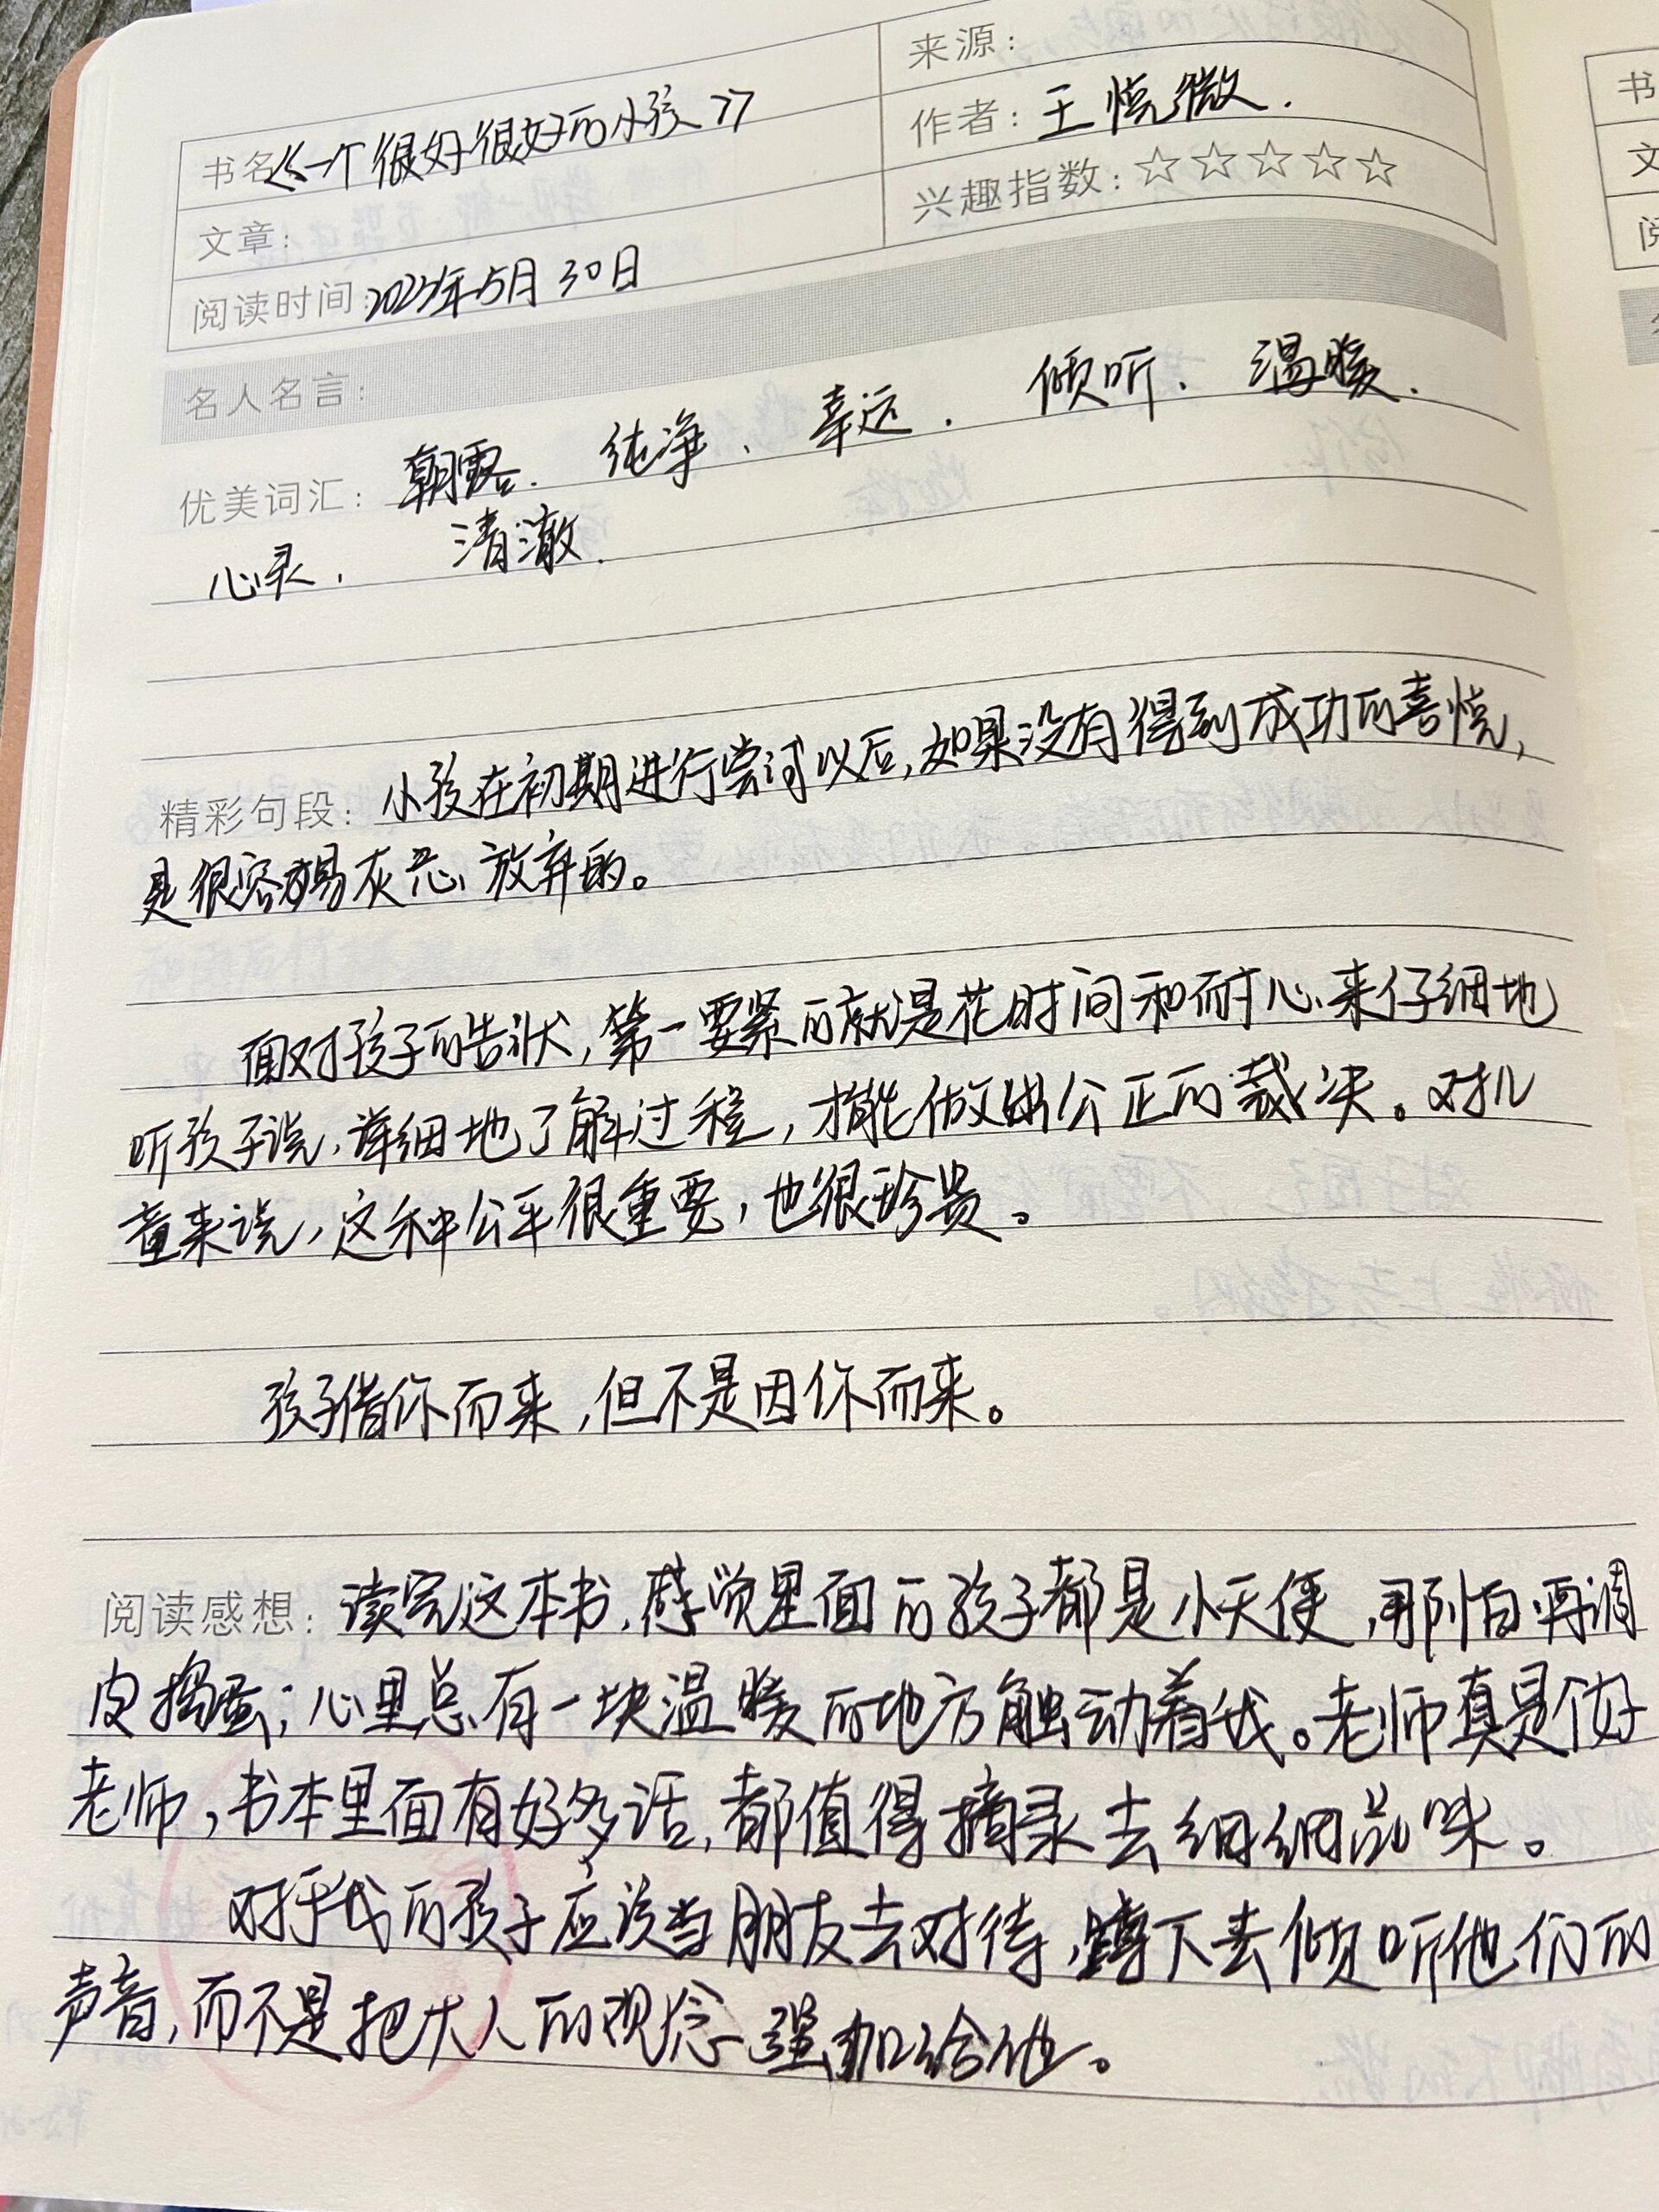 书名《一个很好很好的小孩》
来源：
作者：王悦微.
文章：
兴趣指数：☆☆☆☆☆
阅读时间：2023年5月30日
名人名言：
优美词汇：朝露. 纯净、幸运. 倾听、温暖.
心灵、清澈.
精彩句段：小孩在初期进行尝试以后，如果没有得到成功的喜悦，
是很容易灰心放弃的。
面对孩子的告状，第一要紧的就是花时间和耐心来仔细地
听孩子说，详细地了解过程，才能做出公正的裁决。对儿
童来说，这种公平很重要，也很珍贵。
孩子借你而来，但不是因你而来。
阅读感想：读完这本书，感觉里面的孩子都是小天使，那怕再调
皮捣蛋；心里总有一块温暖的地方触动着我。老师真是个好
老师，书本里面有好多话，都值得摘录去细细品味。
对于我的孩子应该当朋友去对待，蹲下去倾听他们的
声音，而不是把大人的观念强加给他。